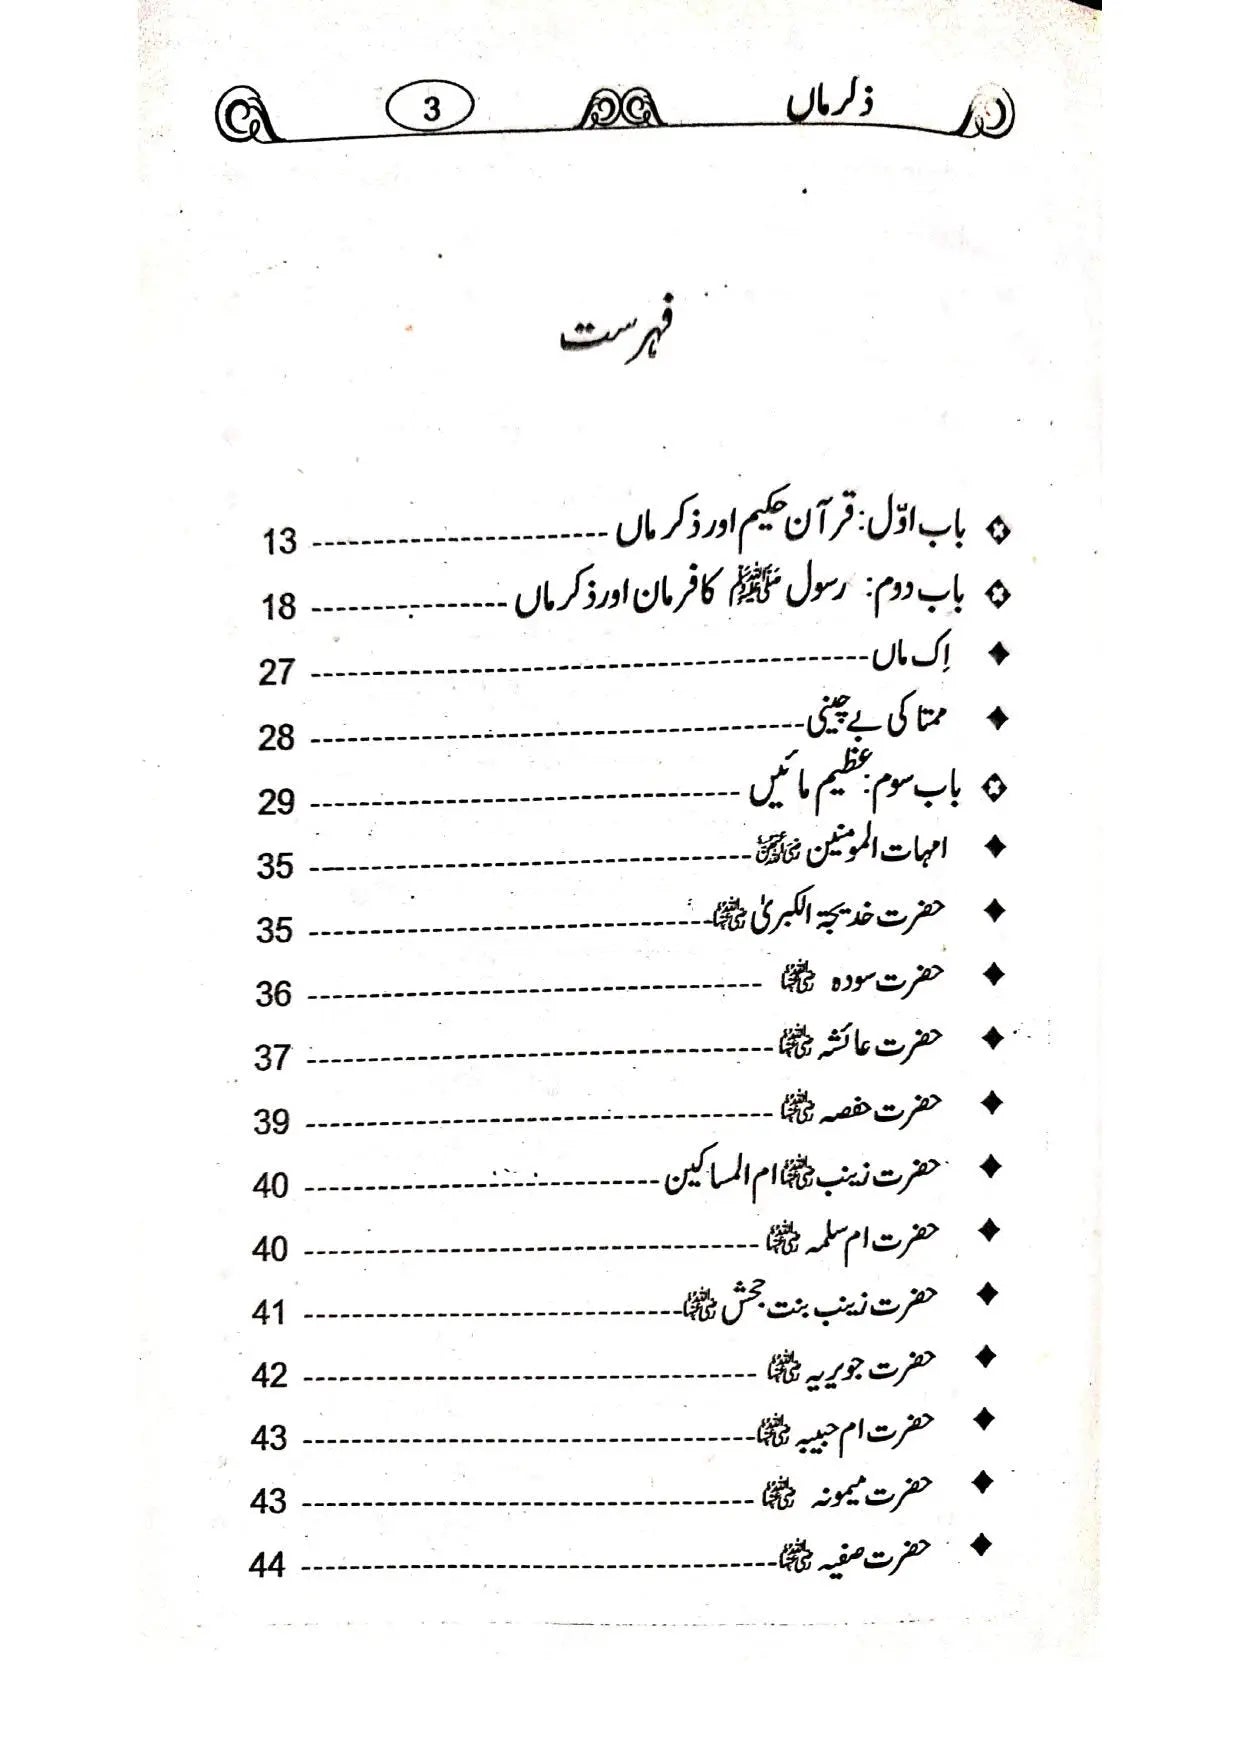 ذکر ماں 3
فہرست
باب اوّل: قرآن حکیم اور ذکر ماں ---------- 13
باب دوم: رسول ﷺ کا فرمان اور ذکر ماں ---------- 18
اِک ماں ---------- 27
ممتا کی بے چینی ---------- 28
باب سوم: عظیم مائیں ---------- 29
امہات المومنین رضی اللہ عنہن ---------- 35
حضرت خدیجۃ الکبریٰ رضی اللہ عنہا ---------- 35
حضرت سودہ رضی اللہ عنہا ---------- 36
حضرت عائشہ رضی اللہ عنہا ---------- 37
حضرت حفصہ رضی اللہ عنہا ---------- 39
حضرت زینب رضی اللہ عنہا ام المساکین ---------- 40
حضرت ام سلمہ رضی اللہ عنہا ---------- 40
حضرت زینب بنت جحش رضی اللہ عنہا ---------- 41
حضرت جویریہ رضی اللہ عنہا ---------- 42
حضرت ام حبیبہ رضی اللہ عنہا ---------- 43
حضرت میمونہ رضی اللہ عنہا ---------- 43
حضرت صفیہ رضی اللہ عنہا ---------- 44